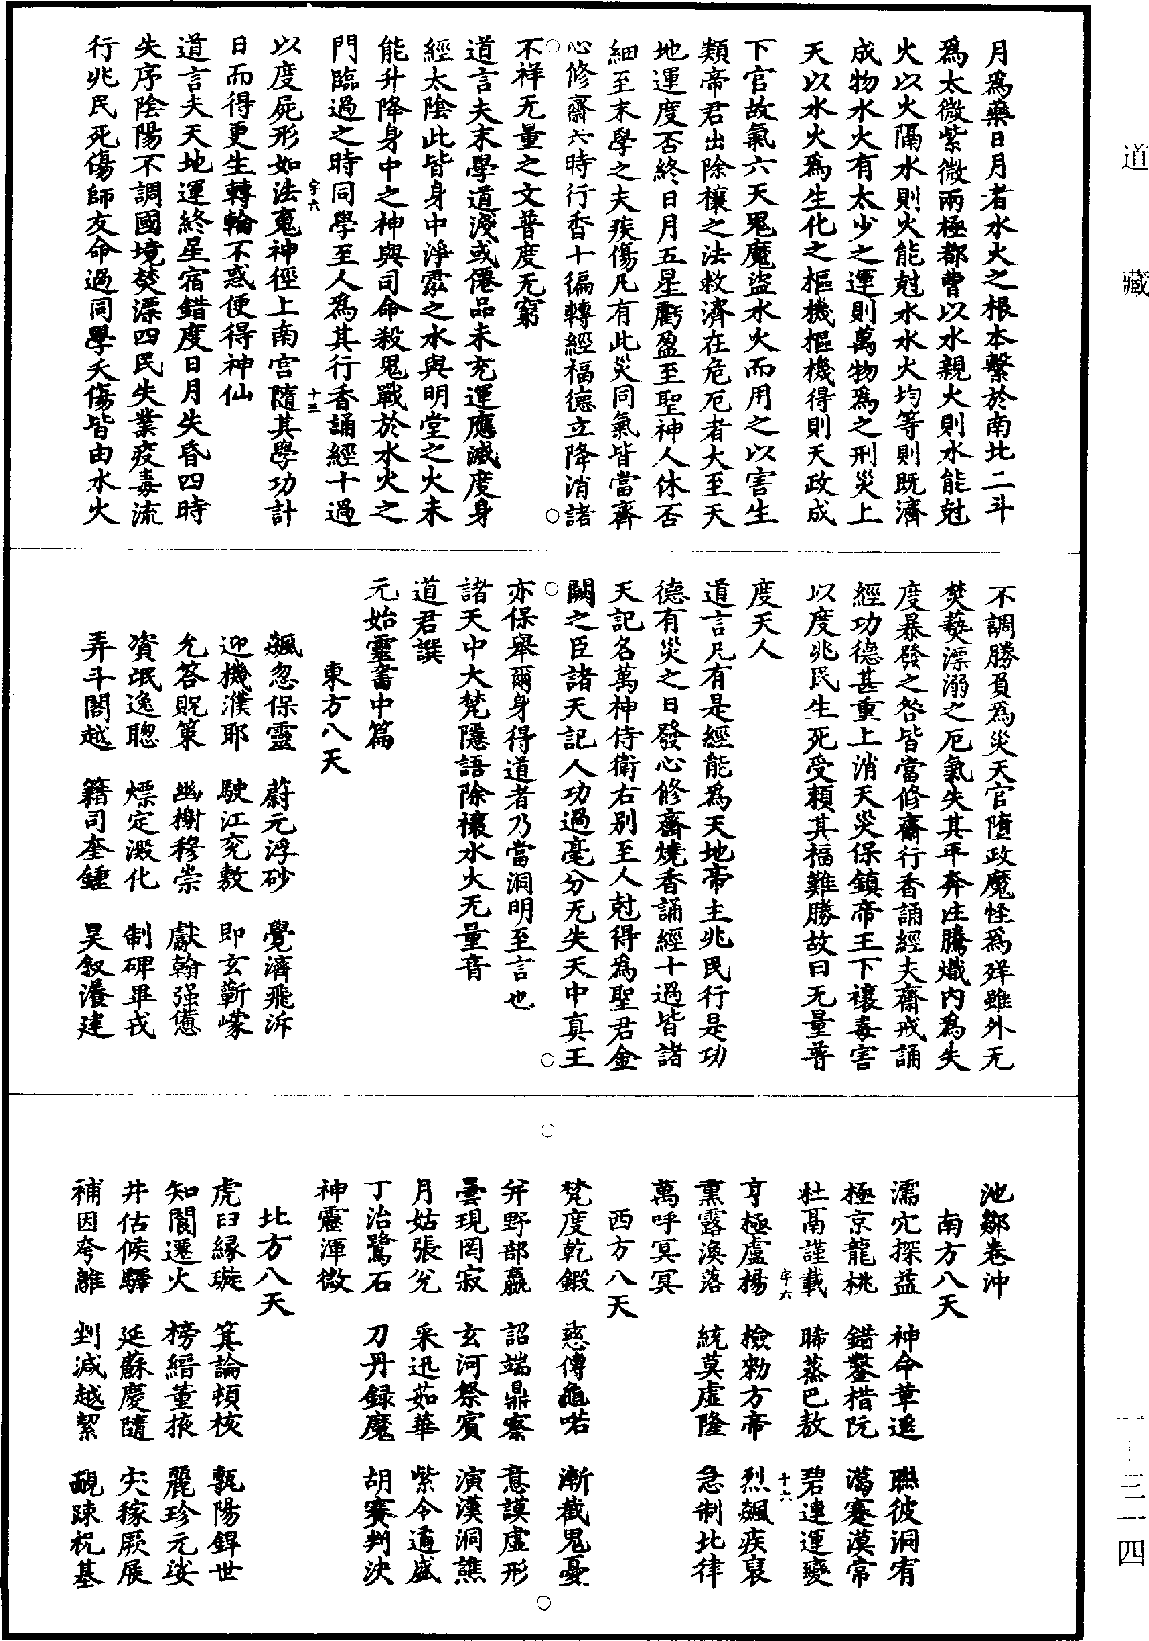 道藏
月爲藥日月者水火之根本繫於南北二斗
爲太微紫微兩極都曹以水親火則水能尅
火以火隔水則火能尅水水火均等則既濟
成物水火有太少之運則萬物爲之刑災上
天以水火爲生化之樞機樞機得則天政成
下官故氣六天鬼魔盜水火而用之以害生
類帝君出除穰之法救濟在危厄者大至天
地運度否終日月五星虧盈至聖神人休否
細至末學之夫疾傷凡有此災同氣皆當齋
心修齋六時行香十徧轉經福德立降消諸
不祥无量之文普度无窮
道言夫末學道淺或僊品未充運應滅度身
經太陰此皆身中淨霐之水與明堂之火未
能升降身中之神與司命殺鬼戰於水火之
門臨過之時同學至人爲其行香誦經十過
字六 十三
以度屍形如法魂神徑上南宮隨其學功計
日而得更生轉輪不惑便得神仙
道言夫天地運終星宿錯度日月失昏四時
失序陰陽不調國境焚漂四民失業疫毒流
行兆民死傷師友命過同學夭傷皆由水火
不調勝負爲災天官墮政魔怪爲殃雖外无
焚爇漂溺之厄氣失其平奔注騰熾内爲失
度暴發之咎皆當修齋行香誦經夫齋戒誦
經功德甚重上消天災保鎮帝王下禳毒害
以度兆民生死受賴其福難勝故曰无量普
度天人
道言凡有是經能爲天地帝主兆民行是功
德有災之日發心修齋燒香誦經十過皆諸
天記名萬神侍衛右别至人尅得爲聖君金
闕之臣諸天記人功過毫分无失天中真王
亦保舉爾身得道者乃當洞明至言也
諸天中大梵隱語除禳水火无量音
道君譔
元始靈書中篇
東方八天
飆忽保靈 蔚元浮砂 覺濟飛泝
迎機濮耶 駛江兖敷 即玄蘄嶸
允答貺策 幽榭穆崇 獻翰强僊
資岷逸聰 熛定澱化 制碑畢戎
弄斗閤越 籍司奎鍾 昊叙濮建
池鄒卷沖
南方八天
濡穴探益 神命草遥 聯彼洞宥
極京龍桃 錯鑿楷阮 澫蹇漠常
杜鬲謹載 晞蒸巴敖 碧連運變
字六 十六
亨極盧楊 檢勑方帝 烈飆疾裒
熏露渙落 統莫虛隆 急制北律
萬呼冥冥
西方八天
梵度乾鍛 惎傳龜喏 漸截鬼憂
弁野部嬴 詔端鼎寮 意謨虛形
曇現罔寂 玄河祭賓 演漢洞譙
月姑張兊 采迅茹華 紫令遁盛
丁治鷺石 刀丹録魔 胡賽判決
神靈渾微
北方八天
虎臼縁璇 箕論頓核 甄陽銲世
知閬遷火 榜縉董掖 麗珍元娑
井估候驛 延蘇慶隨 宊稼厥展
補因夸離 㓨減越絜 覶踈柷基
一三二四